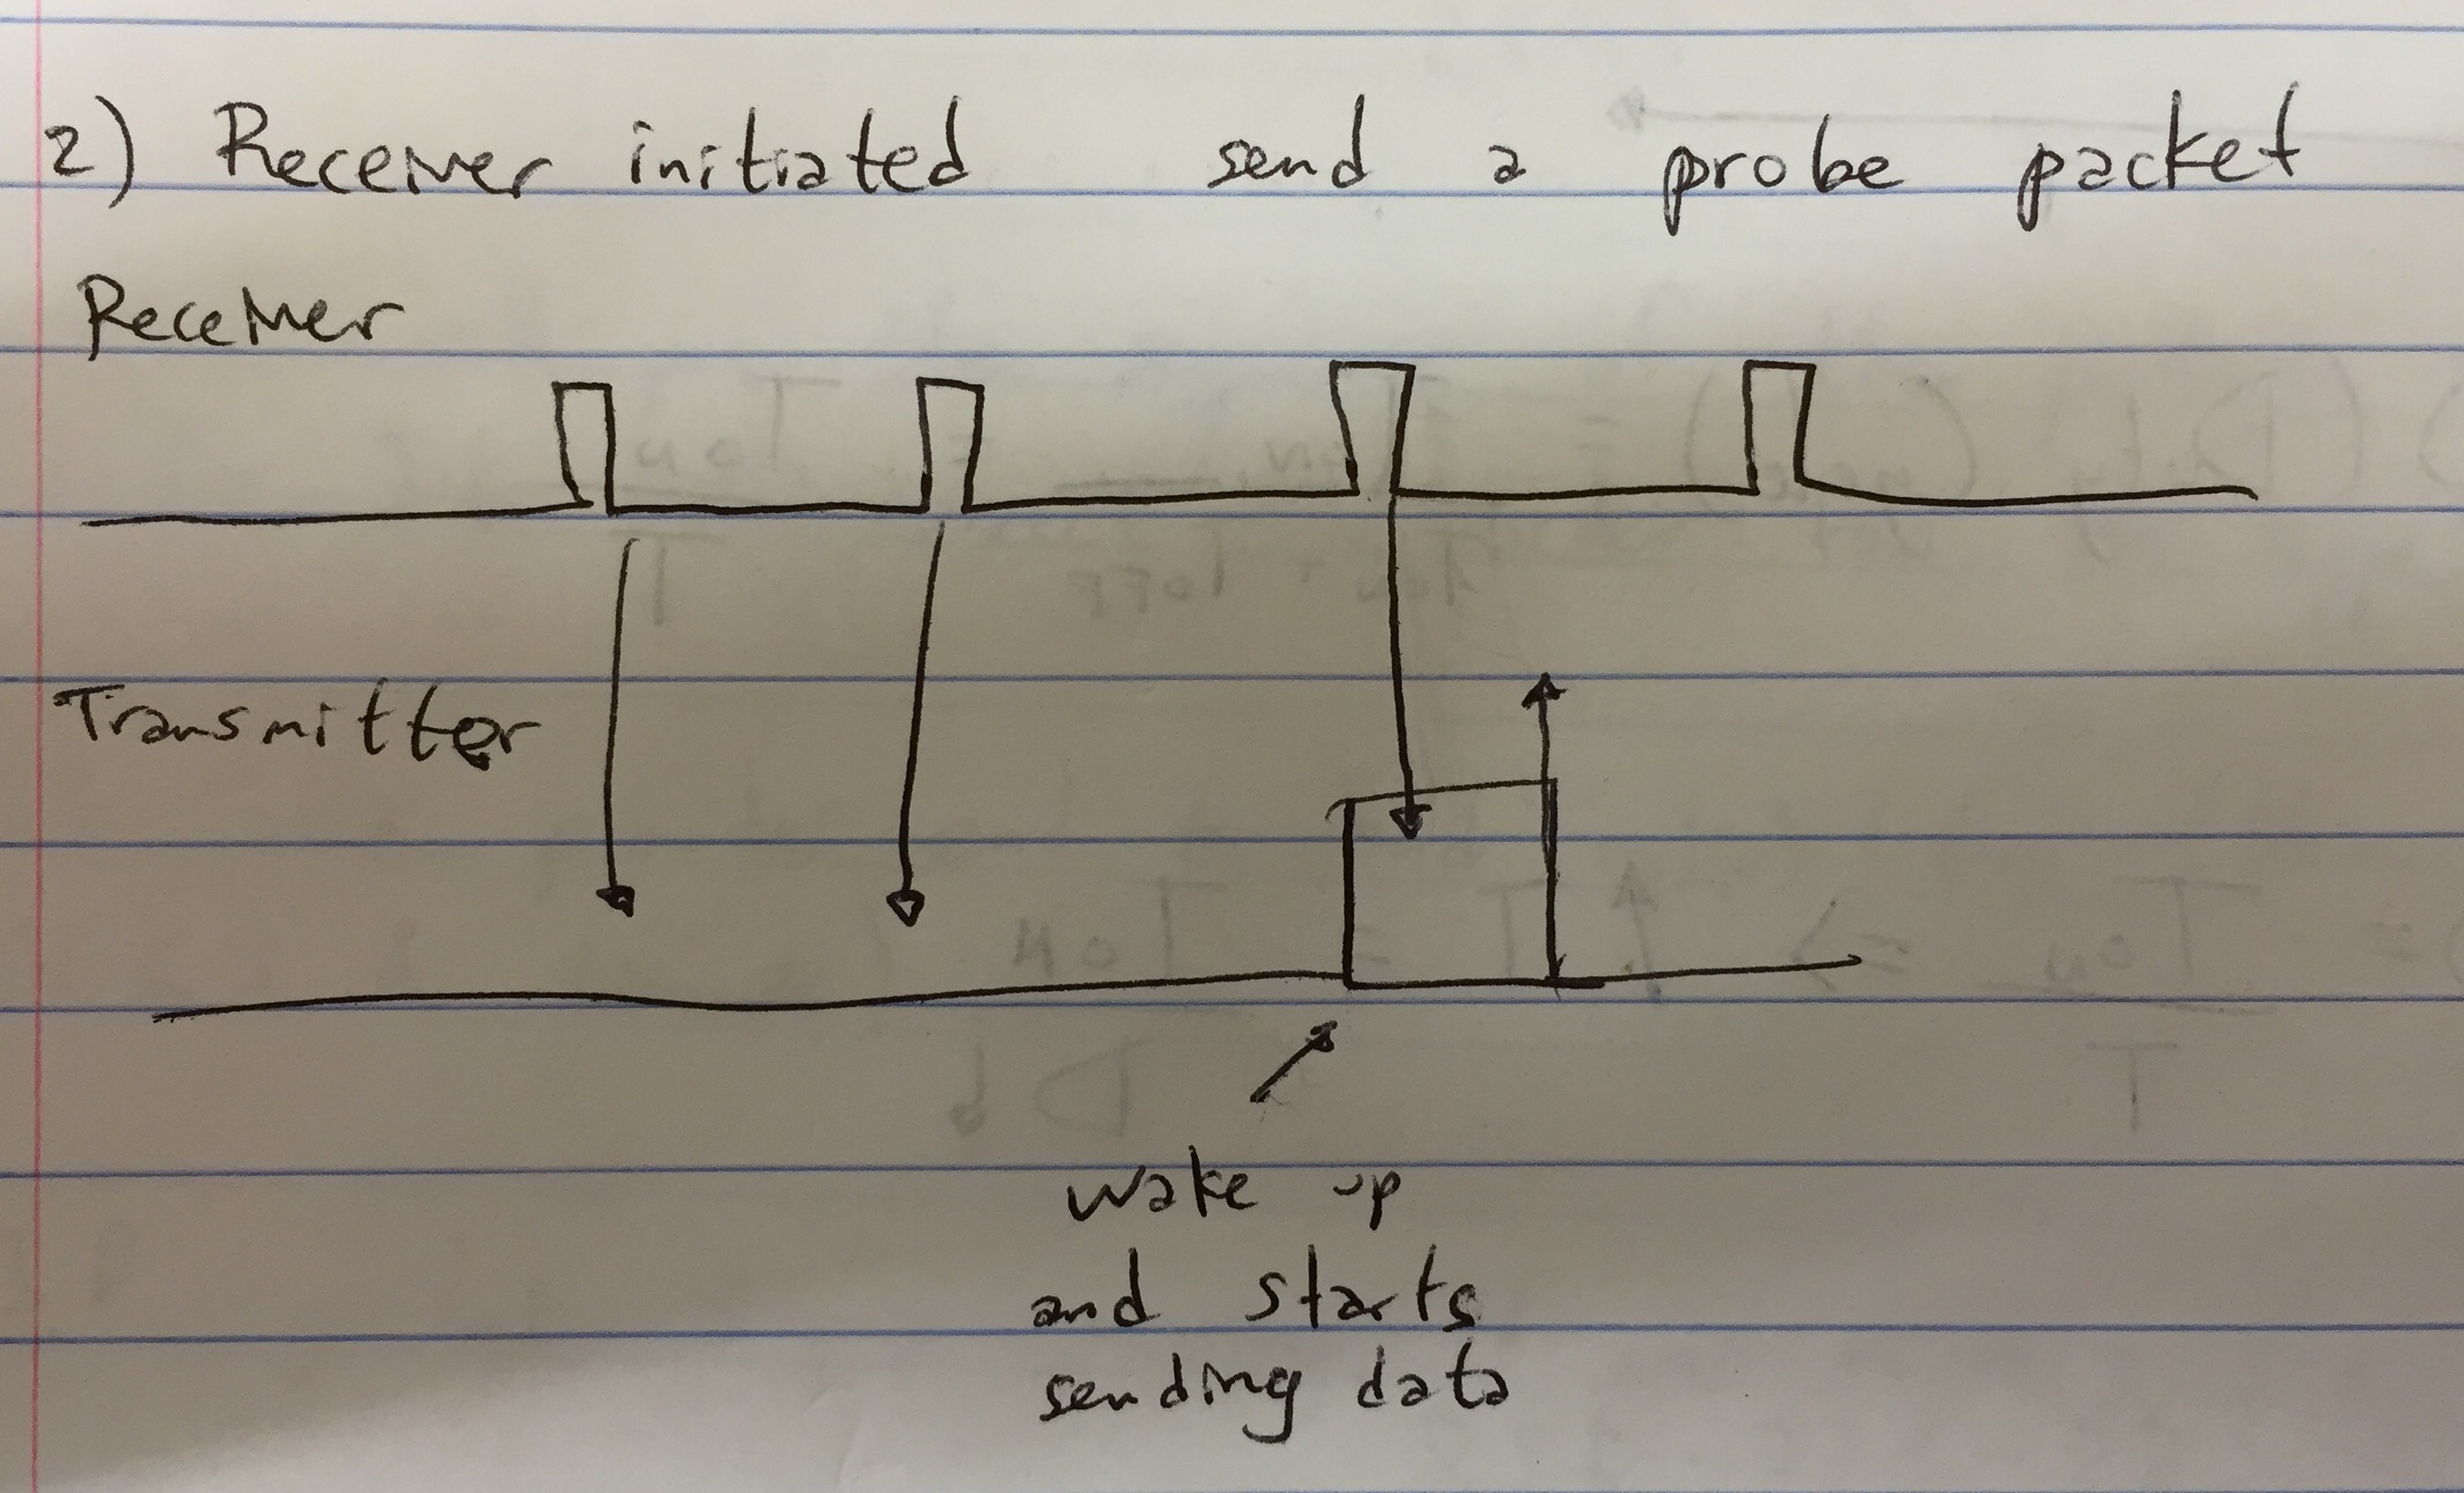 2) Receiver initiated send a probe packet
Receiver
Transmitter
wake up
and starts
sending data